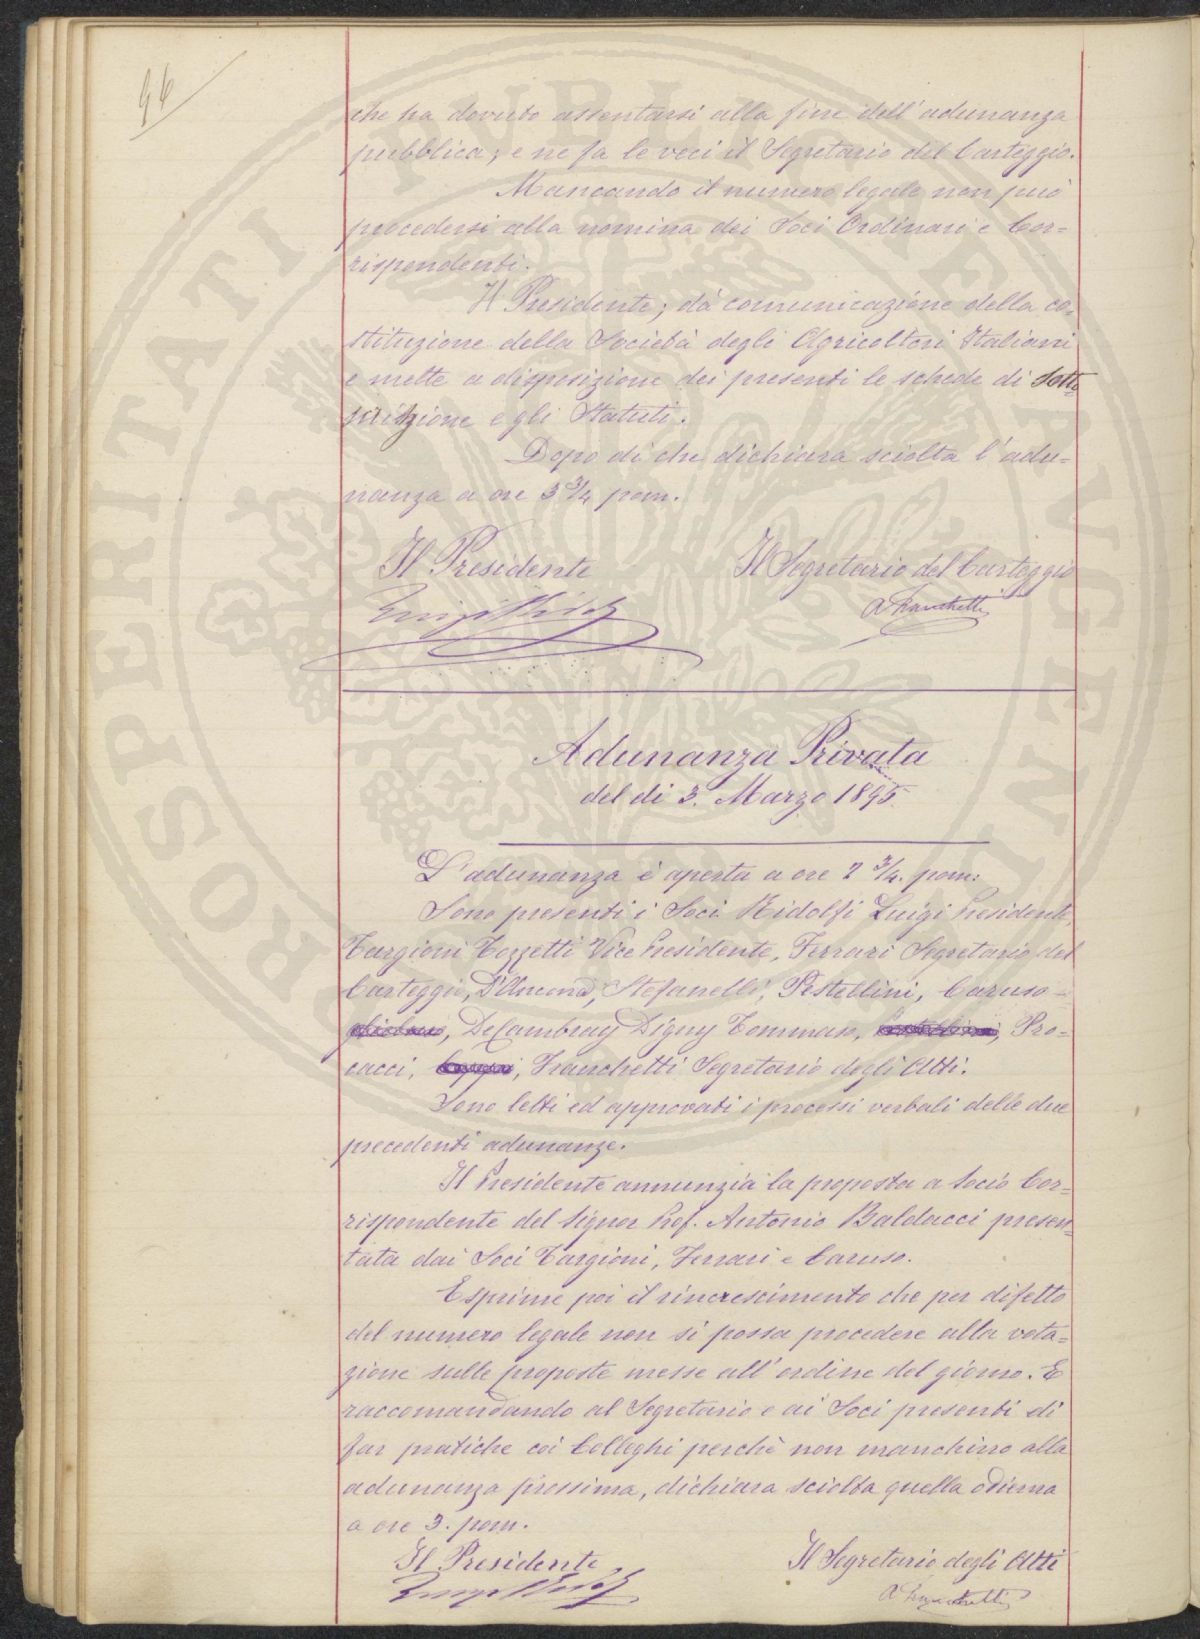 96
che ha dovuto assentarsi alla fine dell'adunanza
pubblica; e ne fa le veci il Segretario del Carteggio.
Mancando il numero legale non può
procedersi alla nomina dei Soci Ordinari e Cor=
rispondenti.
Il Presidente, dà comunicazione della co=
stituzione della Società degli Agricoltori Italiani
e mette a disposizione dei presenti le schede di Sotto=
scrizione e gli Statuti.
Dopo di che dichiara sciolta l'adu=
nanza a ore 3 3/4 pom.
Il Presidente Il Segretario del Carteggio
Luigi Ridolfi A Franchetti
Adunanza Privata
del dì 3. Marzo 1895.
L'adunanza è aperta a ore 2 3/4. pom:
Sono presenti i Soci Ridolfi Luigi Presidente,
Targioni Tozzetti Vice Presidente, Ferrari Segretario del
Carteggio, D'Ancona, Stefanelli, Pestellini, Caruso
, DeCambray Digny Tommaso, , Pro=
cacci, , Franchetti Segretario degli Atti.
Sono letti ed approvati i processi verbali delle due
precedenti adunanze.
Il Presidente annunzia la proposta a Socio Cor=
rispondente del Signor Prof. Antonio Baldacci presen=
tata dai Soci Targioni, Ferrari e Caruso.
Esprime poi il rincrescimento che per difetto
del numero legale non si possa procedere alla vota=
zione sulle proposte messe all'ordine del giorno. E
raccomandando al Segretario e ai Soci presenti di
far pratiche coi Colleghi perchè non manchino alla
adunanza prossima, dichiara sciolta quella odierna
a ore 3. pom.
Il Presidente Il Segretario degli Atti
Luigi Ridolfi A Franchetti
PROSPERITATI PVBLICAE AVGENDAE